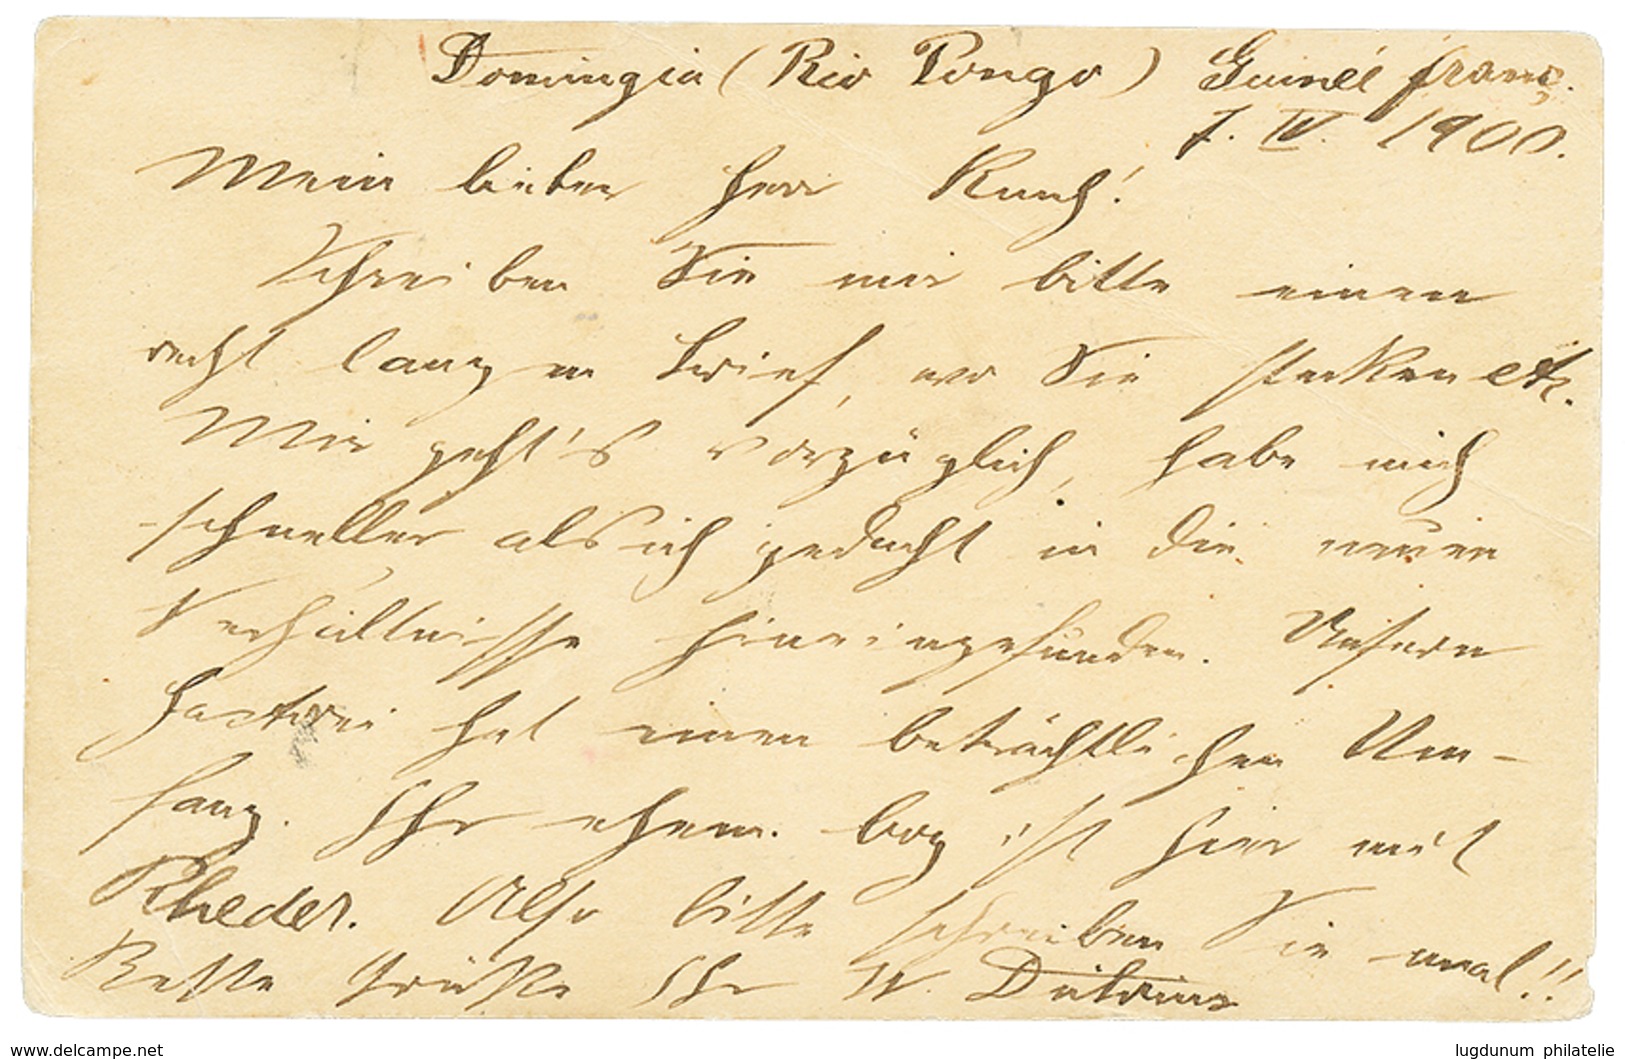 Domingia (Rio Pongo) Guineé franç.
7. IV. 1900.
Mein lieber Herr
Schreiben Sie mir bitte einen
recht langen Brief, wo Sie stecken etc.
Mir geht's vorzüglich, habe mich
schneller als ich gedacht in die neuen
Verhältnisse hineingefunden. Unsere
Factorei hat einen beträchtlichen Um-
fang. Ihr ehem. boy ist hier mit
Rheder. Also bitte schreiben Sie mal!!
Beste Grüße Ihr W.
www.delcampe.net
lugdunum philatelie